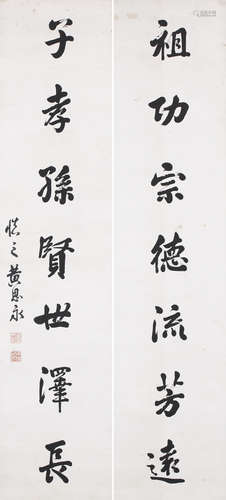 祖功宗德流芳遠
子孝孫賢世澤長
慎之黃思永